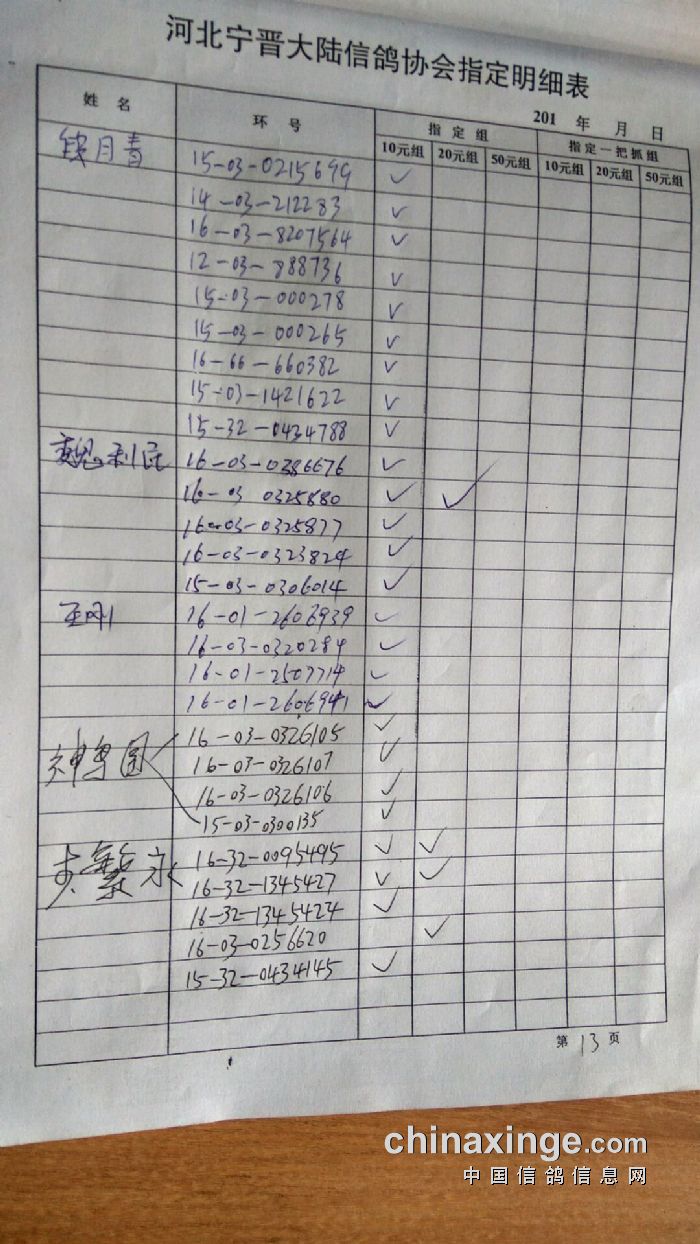 河北宁晋大陆信鸽协会指定明细表
201 年 月 日
姓 名 环 号 指 定 组 指 定 一 把 抓 组
10元组 20元组 50元组 10元组 20元组 50元组
月青 15-03-0215699 ✓
14-03-212283 ✓
16-03-8207564 ✓
12-03-888736 ✓
15-03-000278 ✓
15-03-000265 ✓
16-66-660382 ✓
15-03-1421622 ✓
15-32-0434788 ✓
魏利民 16-03-0386676 ✓
16-03 0325880 ✓ ✓
16-03-0325877 ✓
16-03-0323824 ✓
15-03-0306014 ✓
16-01-2606939 ✓
16-03-0320284 ✓
16-01-2507714 ✓
16-01-2606941 ✓
16-03-0326105 ✓
16-03-0326107 ✓
16-03-0326106 ✓
15-03-0300135 ✓
繁永 16-32-0095495 ✓ ✓
16-32-1345427 ✓ ✓
16-32-1345424 ✓
16-03-0256620 ✓
15-32-0434145 ✓
第 13 页
chinaxinge.com
中国信鸽信息网